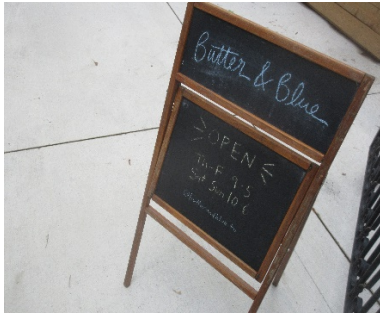 Butter & Blue
OPEN
Th-F 9-5
Sat Sun 10